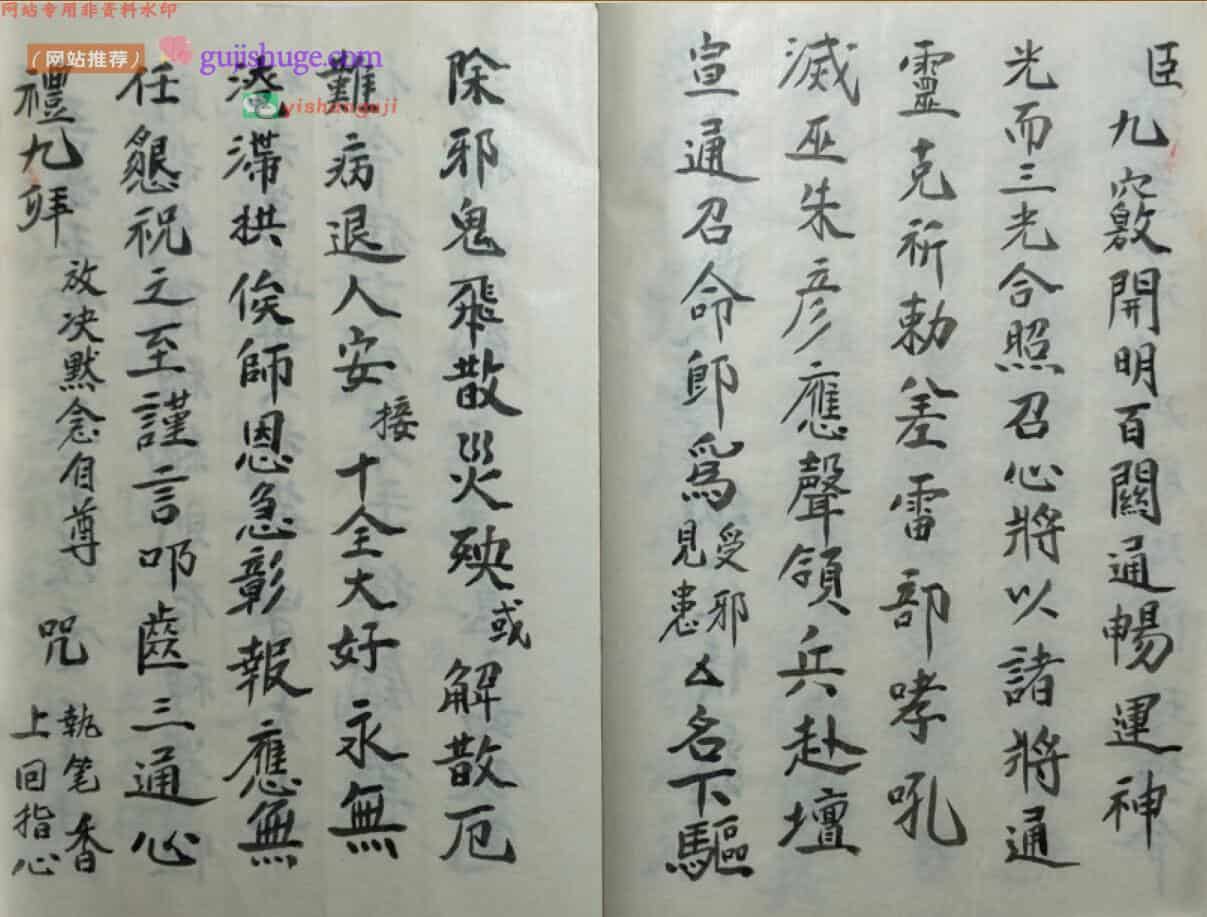 网站专用非资料水印
(网站推荐)
gujishuge.com
yishanguji
臣
九竅開明百關通暢運神
光而三光合照召心將以諸將通
靈克祈勅差雷部哮吼
滅巫朱彥應聲領兵赴壇
宣通召命郎爲
受邪
見患
厶名下驅
除邪鬼飛散災殃
或
解散厄
難病退人安
接
十全大好永無
滯拱俟師恩急彰報應無
任懇祝之至謹言叩齒三通心
禮九拜
放决默念自尊
咒
執笔香
上回指心